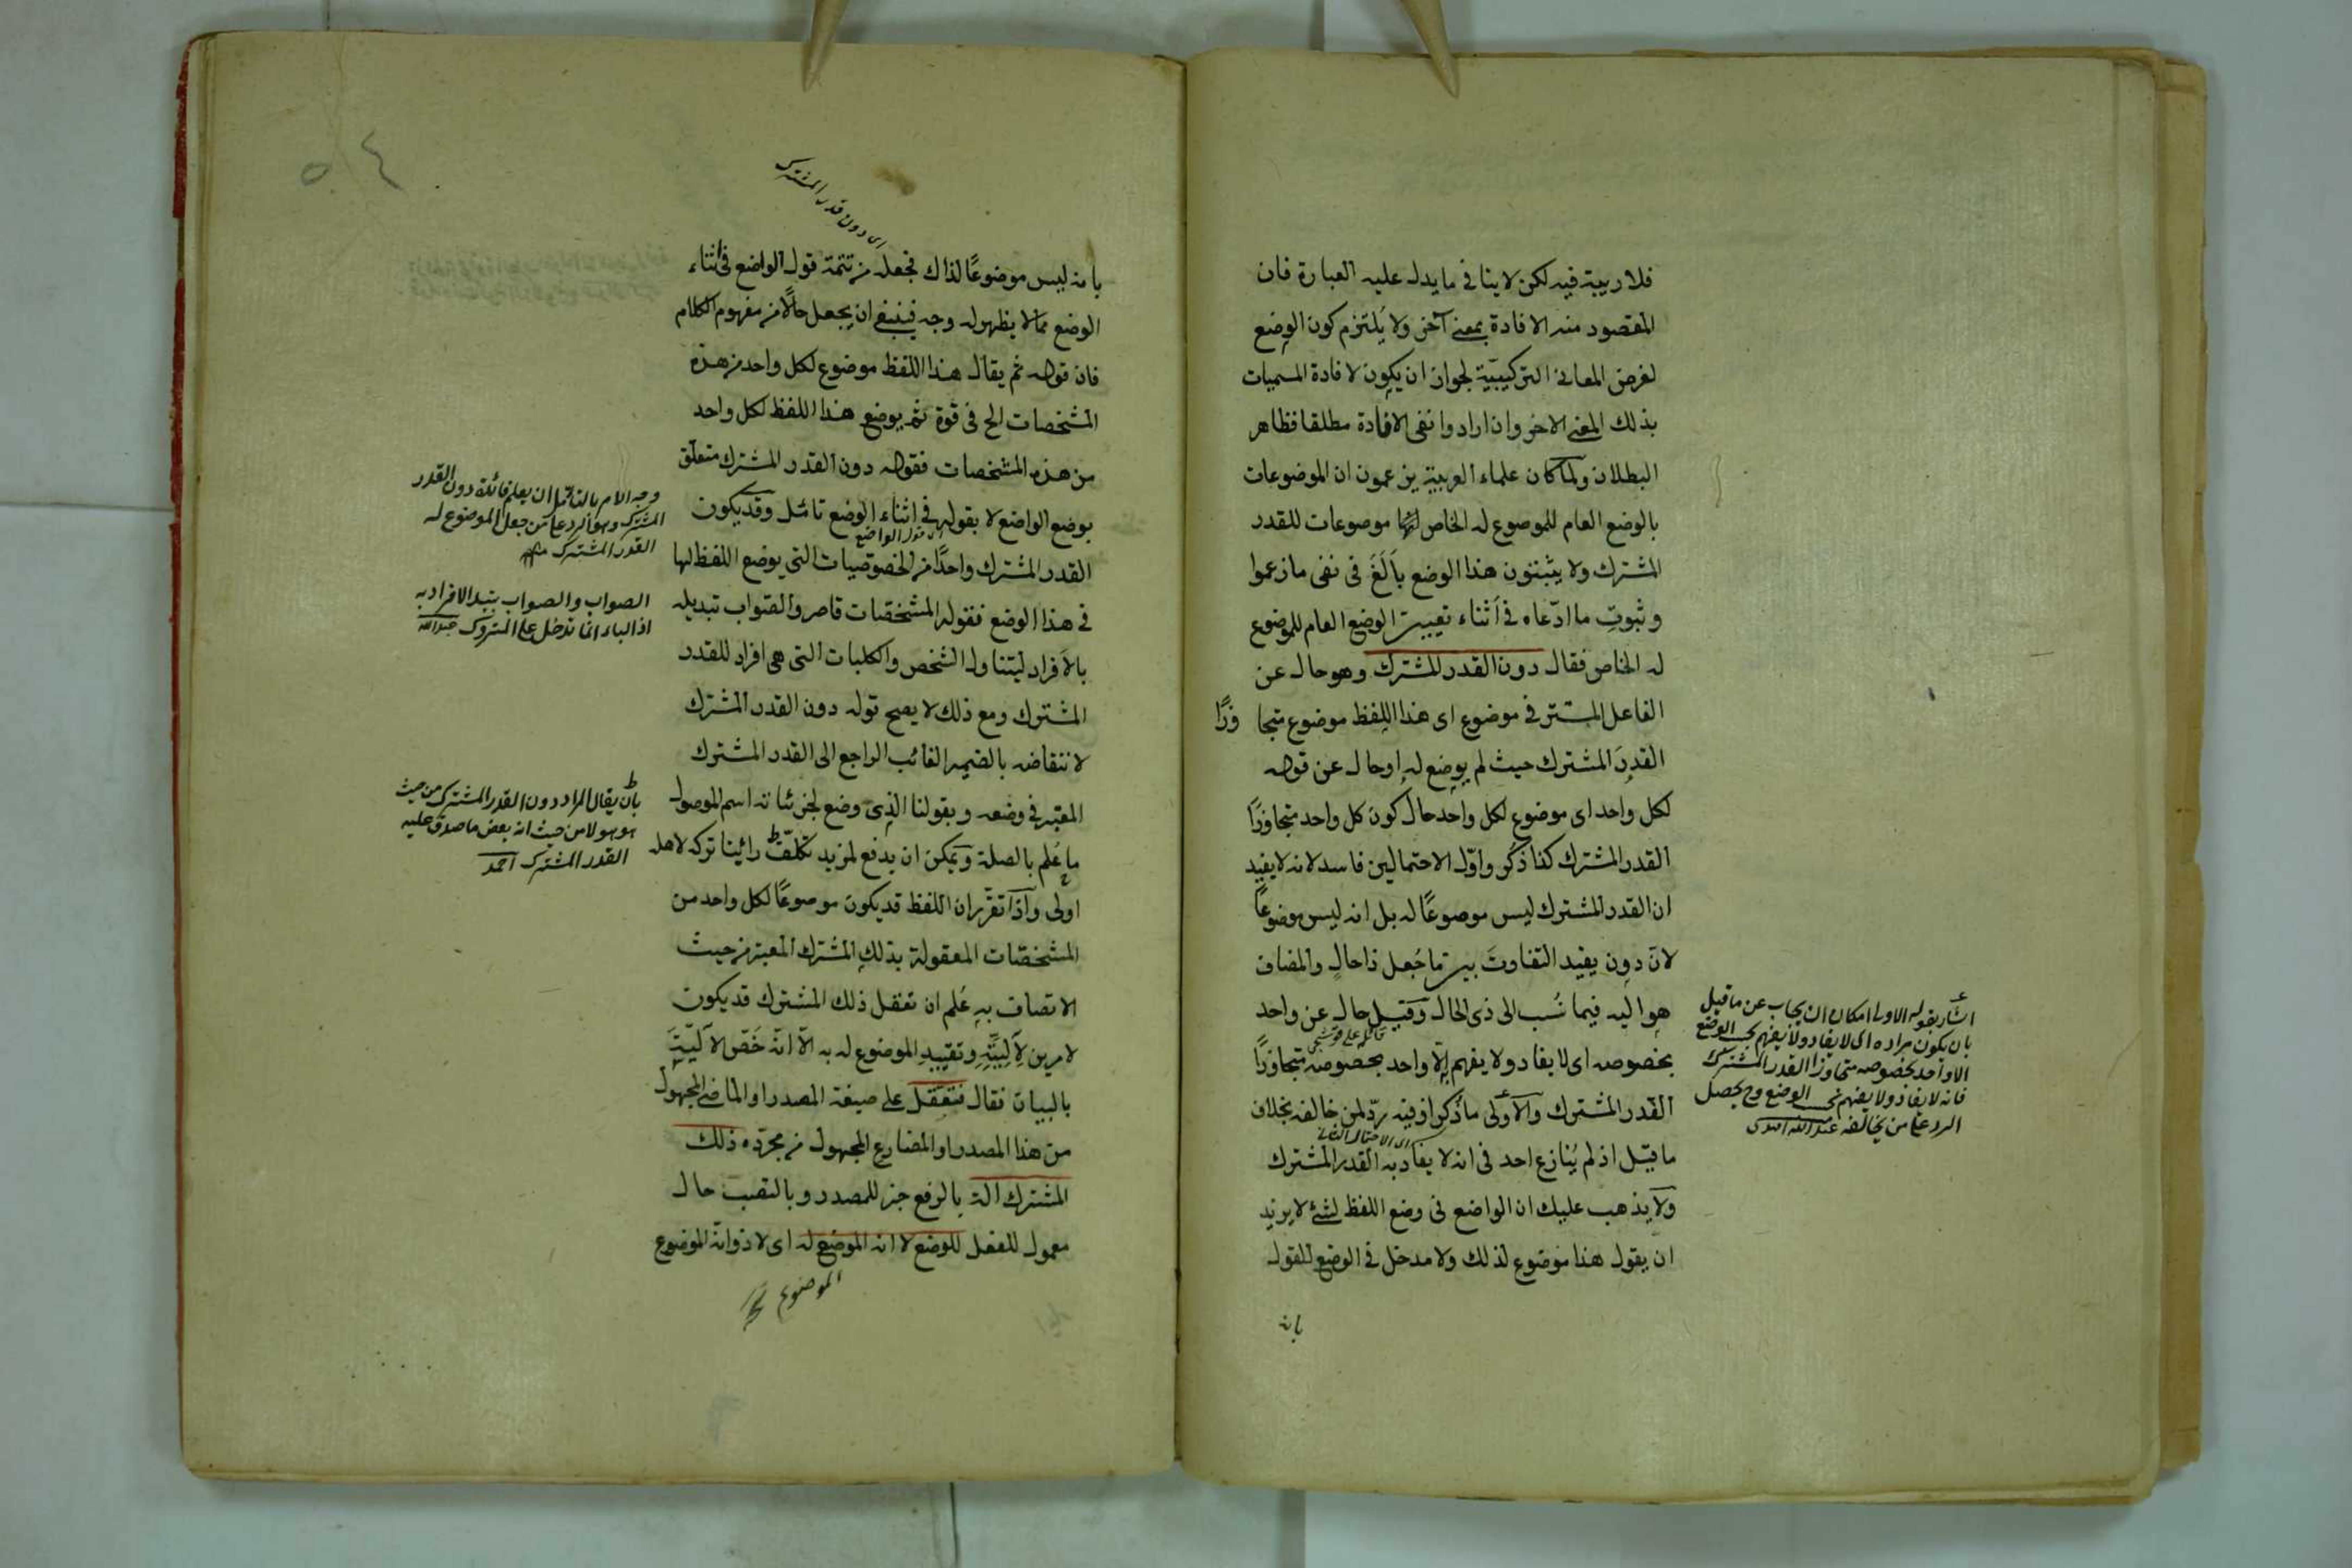 فلا ريبة فيه لكن لا ينافي ما يدل عليه العبارة فان
المقصود منه الافادة بمعنى آخر ولا يُلتزم كون الوضع
لغرض المعاني التركيبيّة لجواز ان يكون لافادة المسميات
بذلك المعنى الاخر وان ارادوا نفى الافادة مطلقا فظاهر
البطلان ولما كان علماء العربية يزعمون ان الموضوعات
بالوضع العام للموضوع له الخاص انها موضوعات للقدر
المشترك ولا يثبتون هذا الوضع بالَغَ فى نفى ما زعموا
وثبوتِ ما ادّعاه في أثناء تعيين الوضع العام للموضوع
له الخاص فقال دون القدر المشترك وهو حال عن
الفاعل المستتر في موضوع اى هذا اللفظ موضوع متجاوزًا
القدرَ المشترك حيث لم يوضع له او حال عن قوله
لكل واحد اى موضوع لكل واحد حال كون كل واحد متجاوزًا
القدر المشترك كذا ذُكر واوّل الاحتمالين فاسد لانه لا يفيد
ان القدر المشترك ليس موضوعًا له بل انه ليس موضوعًا
لان دون يفيد التفاوتَ بين ما جُعل ذا حالٍ والمضاف
هو اليه فيما نُسب الى ذى الحال وقيل حال عن واحد
قائله على قوشجى
بخصوصه اى لا يفاد ولا يفهم الّا واحد بخصوصه متجاوزًا
القدر المشترك والأَولى ما ذُكر اذ فيه ردّ لمن خالفه بخلاف
اى الاحتمال الثانى
ما قيل اذ لم يُنازع احد فى انه لا يفاد به القدر المشترك
ولا يذهب عليك ان الواضع فى وضع اللفظ لشئ لا يزيد
ان يقول هذا موضوع لذلك ولا مدخل في الوضع للقول
بانه
اشار بقوله الاولى امكان ان يجاب عن ما قيل
بان يكون مراده اى لا يفاد ولا يفهم بحسب الوضع
الا واحد بخصوصه متجاوزا القدر المشترك
فانه لا يفاد ولا يفهم بحسب الوضع وح يحصل
الرد على من يخالفه عبد الله افندى
٥٤
اى دون قدر المشترك
بانه ليس موضوعًا لذاك فجعله من تتمة قول الواضع فى اثناء
الوضع مما لا يظهر له وجه فينبغى ان يجعل حالًا من مفهوم الكلام
فان قوله ثم يقال هذا اللفظ موضوع لكل واحد من هذه
المشخصات الخ فى قوة ثم يوضع هذا اللفظ لكل واحد
من هذه المشخصات فقوله دون القدر المشترك متعلق
بوضع الواضع لا بقوله في اثناء الوضع تأمّل وقد يكون
اى قول الواضع
القدر المشترك واحدًا من الخصوصيات التى يوضع اللفظ لها
في هذا الوضع فقوله المشخصات قاصر والصواب تبديله
بالأفراد ليتناول الشخص والكليات التى هى افراد للقدر
المشترك ومع ذلك لا يصح قوله دون القدر المشترك
لانتقاضه بالضمير الغائب الراجع الى القدر المشترك
المعتبر في وضعه وبقولنا الذى وضع لجزئياته اسم الموصول
ما عُلم بالصلة ويمكن ان يدفع لمزيد تكلّف رأينا تركه لاهله
اولى واذا تقرّر ان اللفظ قد يكون موضوعًا لكل واحد من
المشخصات المعقولة بذلك المشترك المعتبر من حيث
الاتصاف به عُلم ان تعقل ذلك المشترك قد يكون
لامرين لآليّته وتقييد الموضوع له به الّا انه خَصّ الآليّة
بالبيان فقال فتعقّل على صيغة المصدر او الماضى المجهول
من هذا المصدر او المضارع المجهول من مجرّده ذلك
المشترك الة بالرفع خبر للمصدر وبالنصب حال
معمول للفعل للوضع لا انه الموضوع له اى لا ذو انه الموضوع
الموضوع
وجه الامر بالتأمل ان يعلم فائدة دون القدر
المشترك وهو الرد على من جعل الموضوع له
القدر المشترك
الصواب والصواب بتبديل الافراد به
اذ الباء انما تدخل على المتروك عبد الله
بان يقال المراد دون القدر المشترك من حيث
هو هو لا من حيث انه بعض ما صدق عليه
القدر المشترك احمد